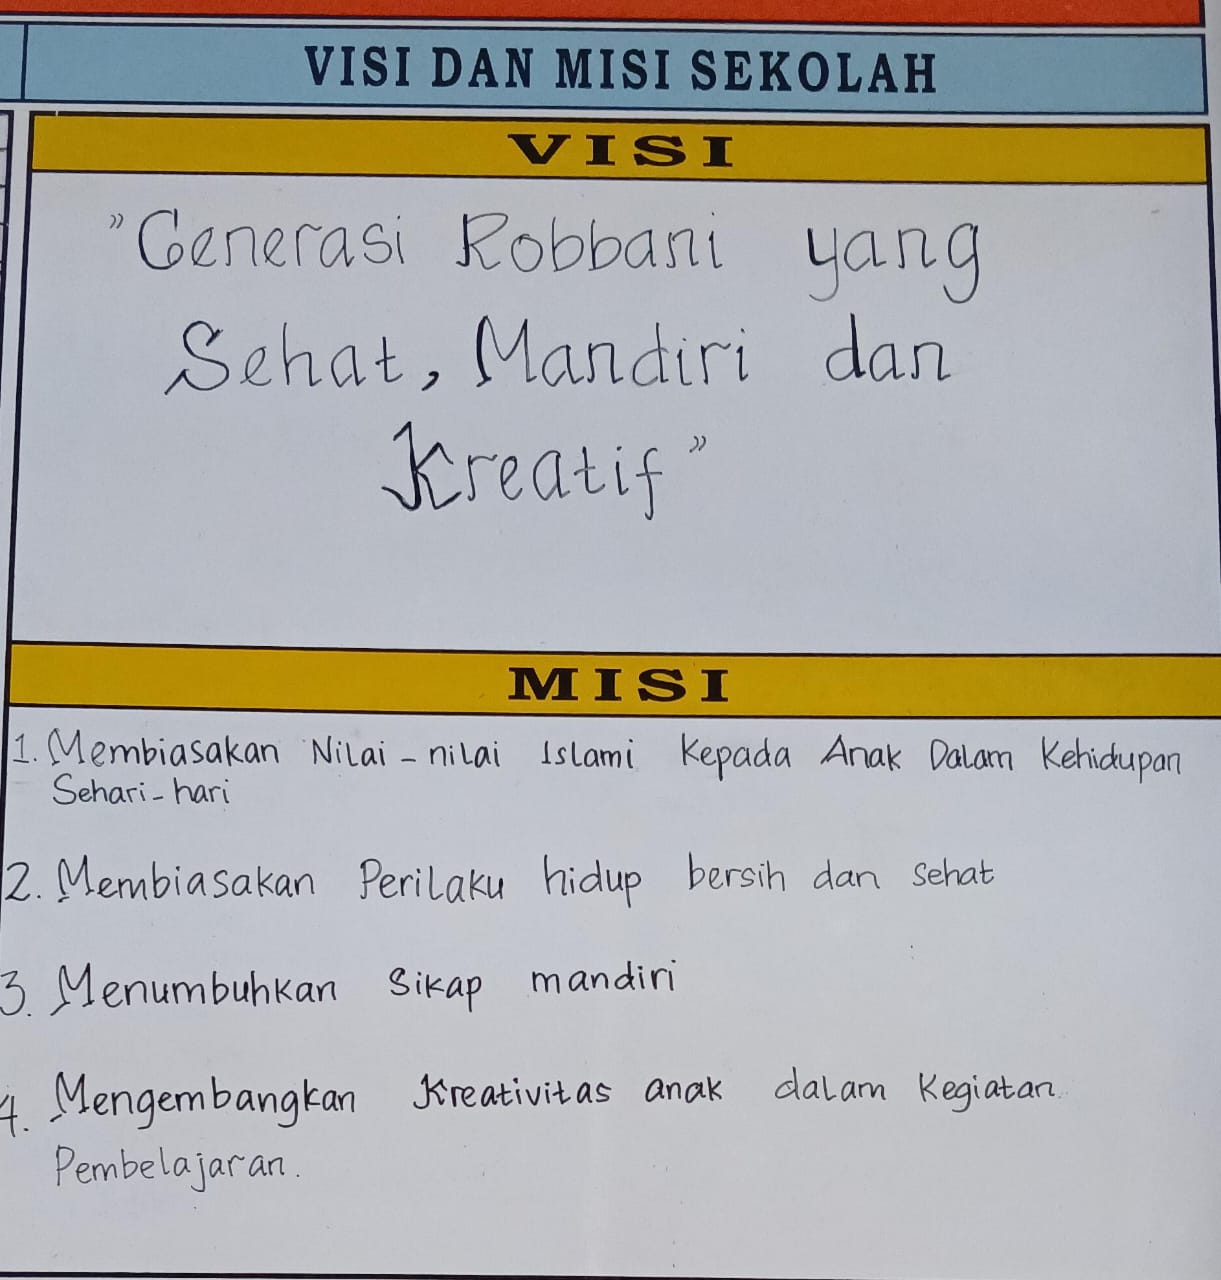 VISI DAN MISI SEKOLAH
VISI
"Generasi Robbani yang
Sehat, Mandiri dan
Kreatif"
MISI
1. Membiasakan Nilai - nilai Islami Kepada Anak Dalam Kehidupan
Sehari - hari
2. Membiasakan Perilaku hidup bersih dan sehat
3. Menumbuhkan Sikap mandiri
4. Mengembangkan Kreativitas anak dalam Kegiatan
Pembelajaran.